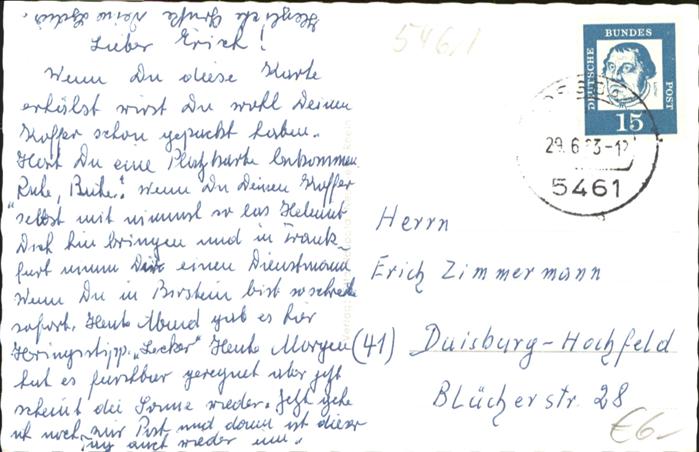 Herzliche Grüße Deine Lydia.
Lieber Erich!
Wenn Du diese Karte
erhälst wirst Du wohl Deinen
Koffer schon gepackt haben.
Hast Du eine Platzkarte bekommen
"Ruhe, Ruhe". Wenn Du Deinen Koffer
selbst mit nimmst so las Helmut
Dich hin bringen und in Frank-
furt nimm Dir einen Dienstmann
Wenn Du in Birstein bist so schreibe
sofort. Heute Abend gab es hier
Heringsstipp. "Lecker" Heute Morgen
hat es furchbar geregnet aber jetzt
scheint die Sonne wieder. Jetzt gehe
ich noch zur Post und dann ist dieser
Tag auch wieder um.
546,1
DEUTSCHE BUNDES POST
15
29.6.63-12
5461
Herrn
Erich Zimmermann
(41) Duisburg-Hochfeld
Blücherstr. 28
€6-